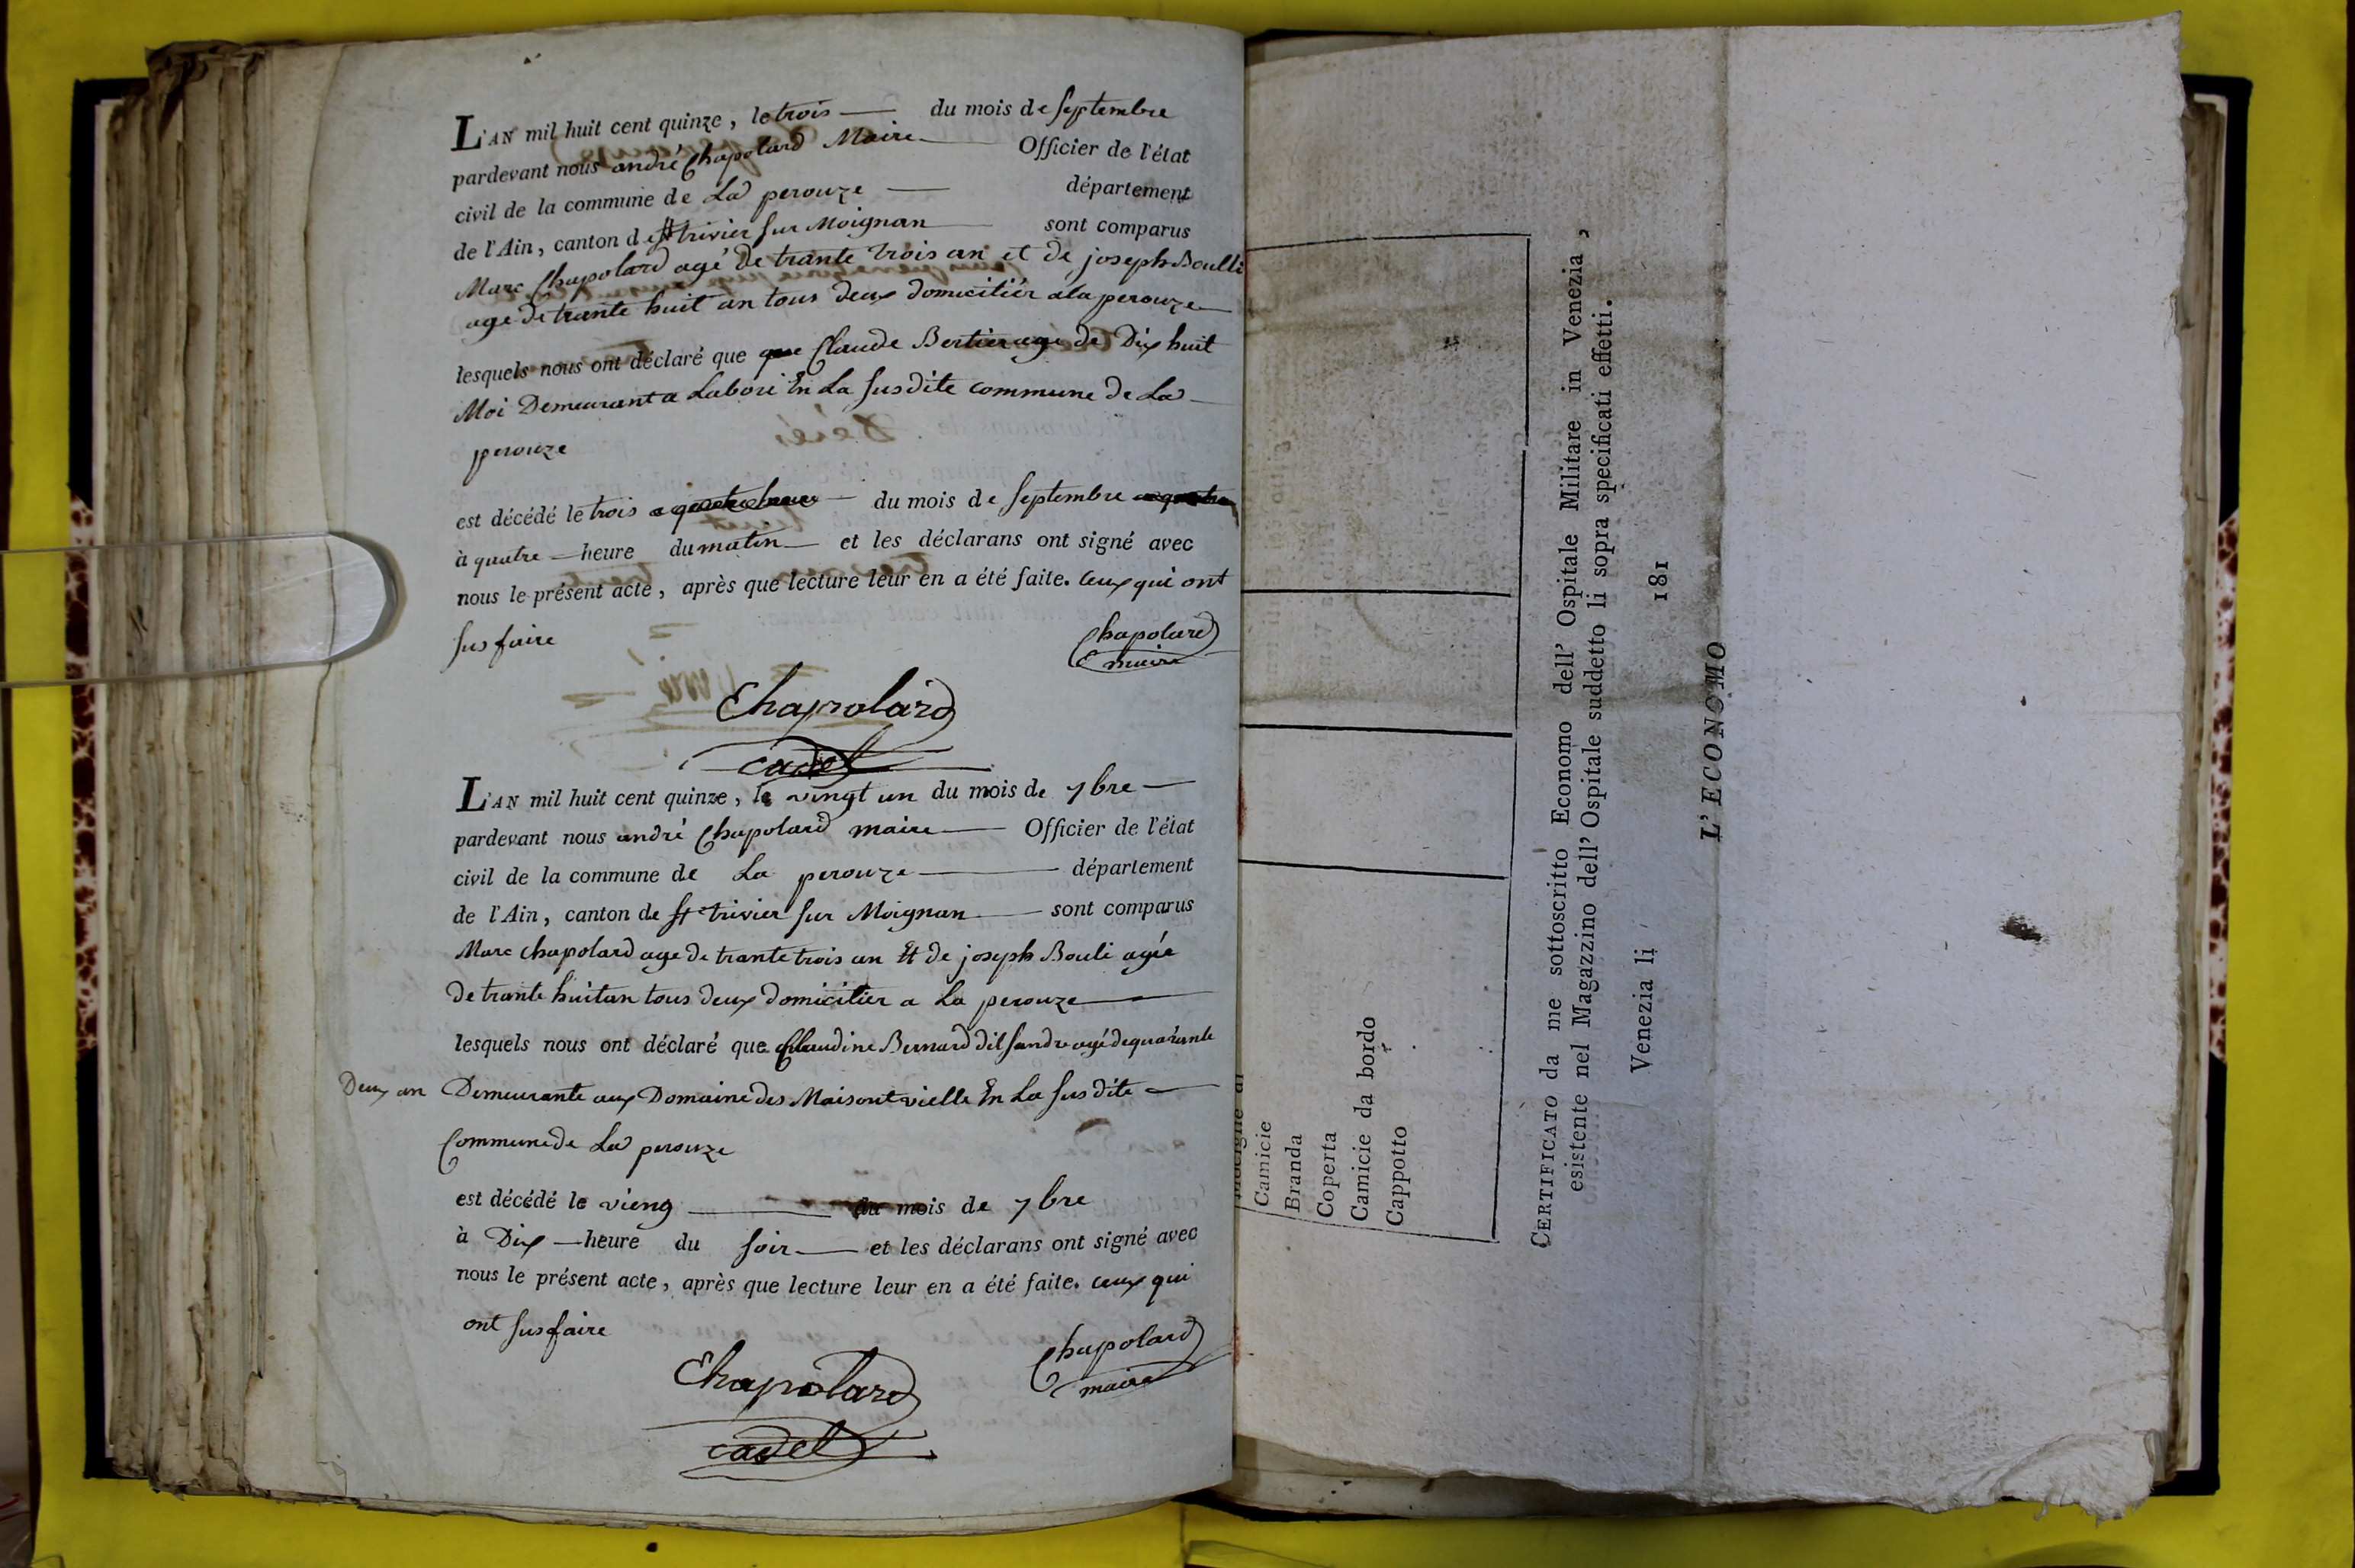 L'AN mil huit cent quinze, le trois du mois de septembre
pardevant nous andré Chapolard Maire Officier de l'état
civil de la commune de La perouze département
de l'Ain, canton de st trivier sur Moignan sont comparus
Marc Chapolard agé de trante trois an et de joseph Boulli
age de trante huit an tous deux domicilier a la perouze
lesquels nous ont déclaré que que Claude Bertier age de Dix huit
Moi Demeurant a Labori En La susdite commune de La
perouze
est décédé le trois du mois de septembre
à quatre heure du matin et les déclarans ont signé avec
nous le présent acte, après que lecture leur en a été faite. ceux qui ont
sus faire
Chapolard
maire
Chapolard
cadet
L'AN mil huit cent quinze, le vingt un du mois de 7bre
pardevant nous andré Chapolard maire Officier de l'état
civil de la commune de La perouze département
de l'Ain, canton de st trivier sur Moignan sont comparus
Marc chapolard age de trante trois an Et de joseph Bouli agée
de trante huit an tous deux domicilier a La perouze
lesquels nous ont déclaré que Claudine Bernard dit Sandre agé de quarante
Deux an Demeurante aux Domaine des Maisont vielle En La susdite
Commune de La perouze
est décédé le vieng du mois de 7bre
à Dix heure du soir et les déclarans ont signé avec
nous le présent acte, après que lecture leur en a été faite. ceux qui
ont sus faire
Chapolard
maire
Chapolard
cadet
Camicie
Branda
Coperta
Camicie da bordo
Cappotto
CERTIFICATO da me sottoscritto Economo dell' Ospitale Militare in Venezia,
esistente nel Magazzino dell' Ospitale suddetto li sopra specificati effetti.
Venezia li 181
L' ECONOMO